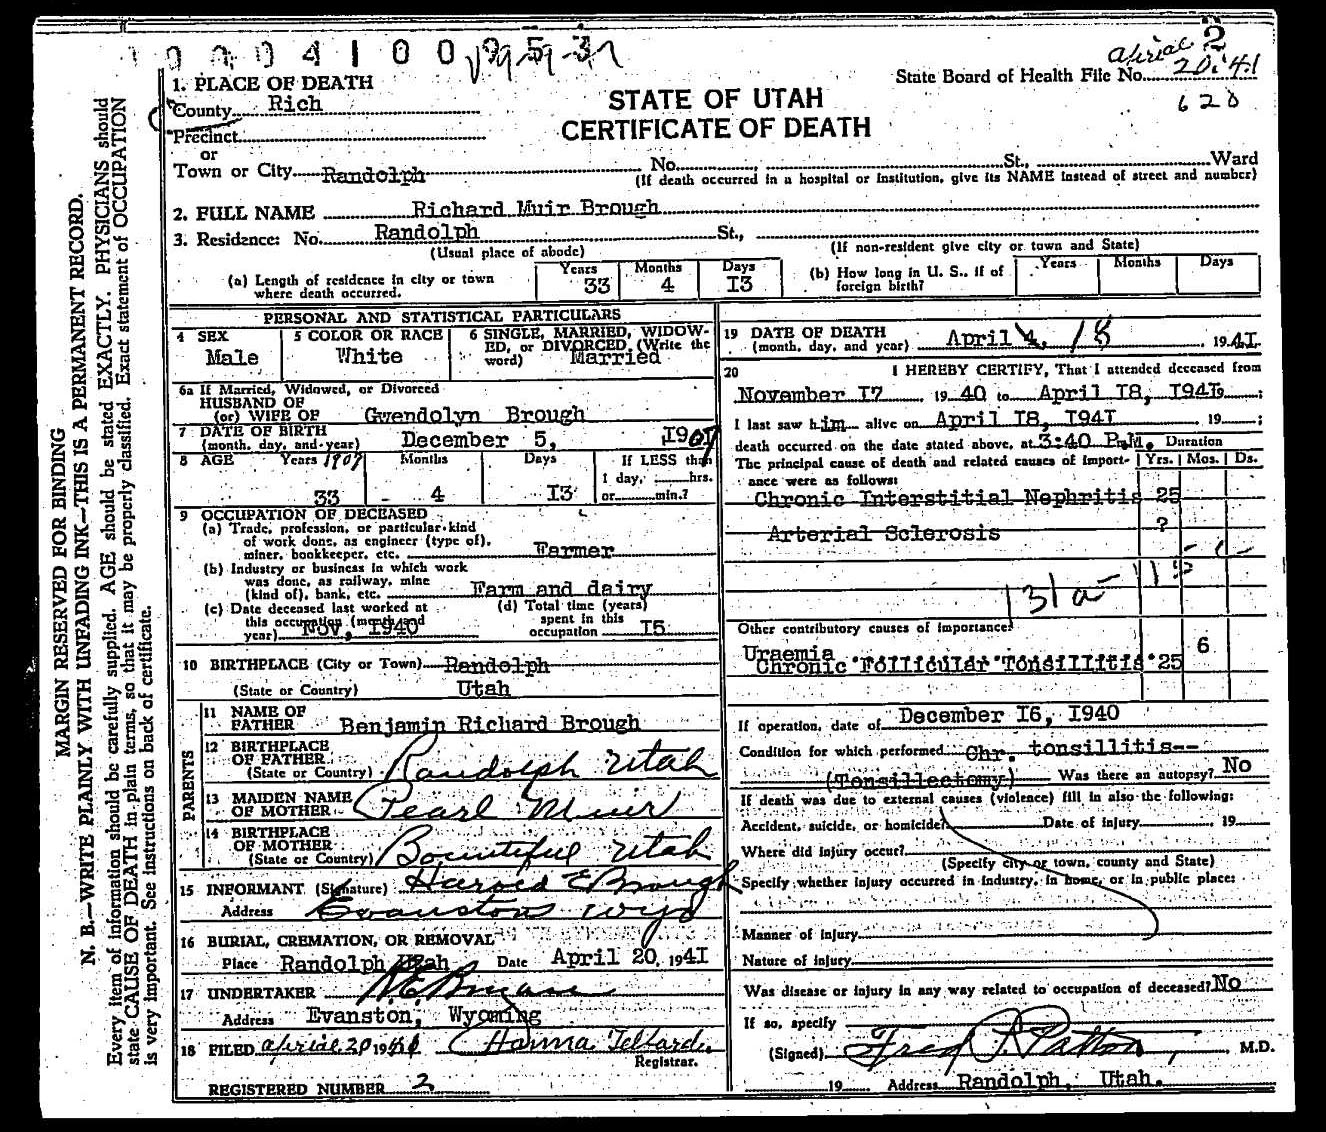 0 0 0 4 1 0 0
2
State Board of Health File No. 20. 41
620
1. PLACE OF DEATH
County Rich
Precinct
or
Town or City Randolph No. St., Ward
(If death occurred in a hospital or institution, give its NAME instead of street and number)
STATE OF UTAH
CERTIFICATE OF DEATH
2. FULL NAME Richard Muir Brough
3. Residence: No. Randolph St.,
(Usual place of abode) (If non-resident give city or town and State)
(a) Length of residence in city or town where death occurred. Years 33 Months 4 Days I3
(b) How long in U. S., if of foreign birth? Years Months Days
PERSONAL AND STATISTICAL PARTICULARS
4 SEX Male
5 COLOR OR RACE White
6 SINGLE, MARRIED, WIDOW-
ED, or DIVORCED, (Write the
word) Married
6a If Married, Widowed, or Divorced
HUSBAND OF
(or) WIFE OF Gwendolyn Brough
7 DATE OF BIRTH
(month, day, and year) December 5, 1907
8 AGE Years 1907 33 Months 4 Days I3
If LESS than
1 day, hrs.
or min.?
9 OCCUPATION OF DECEASED
(a) Trade, profession, or particular kind
of work done, as engineer (type of),
miner, bookkeeper, etc. Farmer
(b) Industry or business in which work
was done, as railway, mine
(kind of), bank, etc. Farm and dairy
(c) Date deceased last worked at
this occupation (month and
year) Nov, I940
(d) Total time (years)
spent in this
occupation I5
10 BIRTHPLACE (City or Town) Randolph
(State or Country) Utah
PARENTS
11 NAME OF
FATHER Benjamin Richard Brough
12 BIRTHPLACE
OF FATHER
(State or Country) Randolph Utah
13 MAIDEN NAME
OF MOTHER Pearl Muir
14 BIRTHPLACE
OF MOTHER
(State or Country) Bountiful Utah
15 INFORMANT (Signature) Harold E Brough
Address Evanston Wyo
16 BURIAL, CREMATION, OR REMOVAL
Place Randolph Utah Date April 20, 194I
17 UNDERTAKER
Address Evanston, Wyoming
18 FILED 20 19
Registrar.
REGISTERED NUMBER 2
19 DATE OF DEATH
(month, day, and year) April 4, 18 , 194I.
20 I HEREBY CERTIFY, That I attended deceased from
November I7 19 40 to April I8, I94I ;
I last saw him alive on April I8, I94I 19 ;
death occurred on the date stated above, at 3:40 P.M. Duration
The principal cause of death and related causes of import- Yrs. Mos. Ds.
ance were as follows:
Chronic Interstitial Nephritis 25
Arterial Sclerosis ?
131a
Other contributory causes of importance:
Uraemia 6
Chronic Follicular Tonsillitis 25
If operation, date of December I6, I940
Condition for which performed Chr. tonsillitis--
(Tonsillectomy) Was there an autopsy? No
If death was due to external causes (violence) fill in also the following:
Accident, suicide, or homicide Date of injury , 19
Where did injury occur?
(Specify city or town, county and State)
Specify whether injury occurred in industry, in home, or in public place:
Manner of injury
Nature of injury
Was disease or injury in any way related to occupation of deceased? No
If so, specify
(Signed) Fred Patton , M.D.
19 Address Randolph, Utah.
MARGIN RESERVED FOR BINDING
N. B.—WRITE PLAINLY WITH UNFADING INK—THIS IS A PERMANENT RECORD.
Every item of information should be carefully supplied. AGE should be stated EXACTLY. PHYSICIANS should
state CAUSE OF DEATH in plain terms, so that it may be properly classified. Exact statement of OCCUPATION
is very important. See instructions on back of certificate.